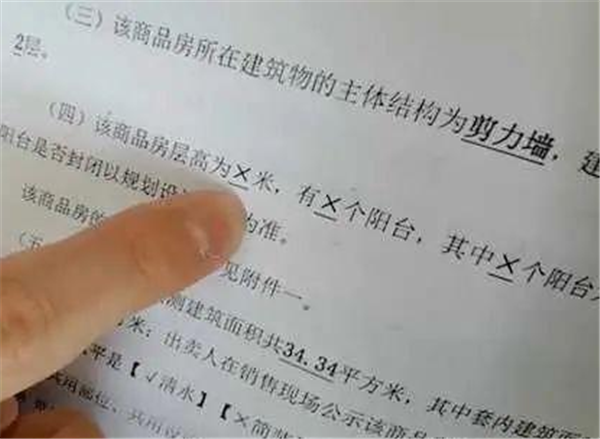 （三）该商品房所在建筑物的主体结构为剪力墙，建
2层。
（四）该商品房层高为×米，有×个阳台，其中×个阳台
阳台是否封闭以规划设 为准。
该商品房的 见附件一。
（五
测建筑面积共34.34平方米，其中套内建筑面
方米；出卖人在销售现场公示该商品
平是【√清水】【×简装
共用部位、共用设